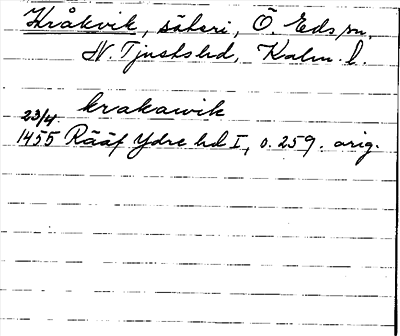 Kråkvik, säteri, Ö. Eds sn.
N. Tjusts hd, Kalm. l.
krakawik
23/4
1455 Rääf Ydre hd I, s. 259. orig.